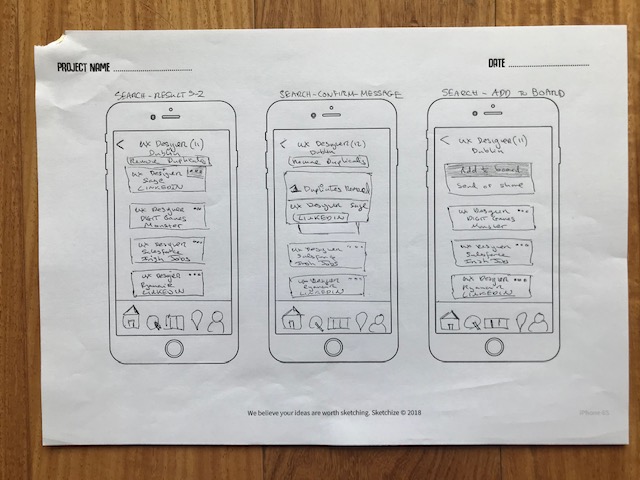 PROJECT NAME
DATE
SEARCH - RESULT S-2
< UX Designer (11)
Dublin
Remove Duplicates
UX Designer
Sage
LINKEDIN
UX Designer
DIGIT Games
Monster
UX Designer
Salesforce
Irish Jobs
UX Designer
Ryanair
LINKEDIN
SEARCH - CONFIRM - MESSAGE
< UX Designer (12)
Dublin
Remove Duplicates
1 Duplicates Removed
UX Designer Sage
LINKEDIN
UX Designer
Salesforce
Irish Jobs
UX Designer
Ryanair
LINKEDIN
SEARCH - ADD TO BOARD
< UX Designer (11)
Dublin
Add to board
Send or share
UX Designer
DIGIT Games
Monster
UX Designer
Salesforce
Irish Jobs
UX Designer
Ryanair
LINKEDIN
We believe your ideas are worth sketching. Sketchize © 2018